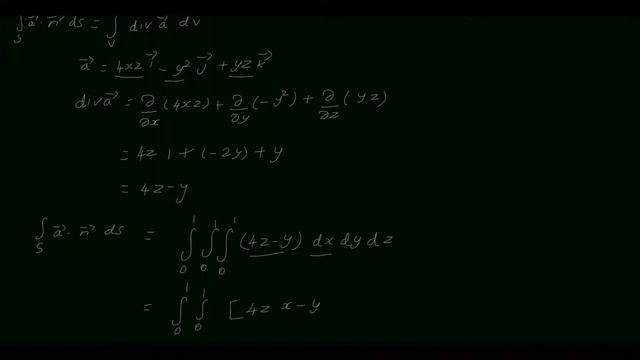 ∫_S a⃗ · n⃗ ds = ∫_V div a⃗ dv
a⃗ = 4xz i⃗ − y² j⃗ + yz k⃗
div a⃗ = ∂/∂x (4xz) + ∂/∂y (−y²) + ∂/∂z (yz)
= 4z 1 + (−2y) + y
= 4z − y
∫_S a⃗ · n⃗ ds = ∫_0^1 ∫_0^1 ∫_0^1 (4z − y) dx dy dz
= ∫_0^1 ∫_0^1 [4z x − y